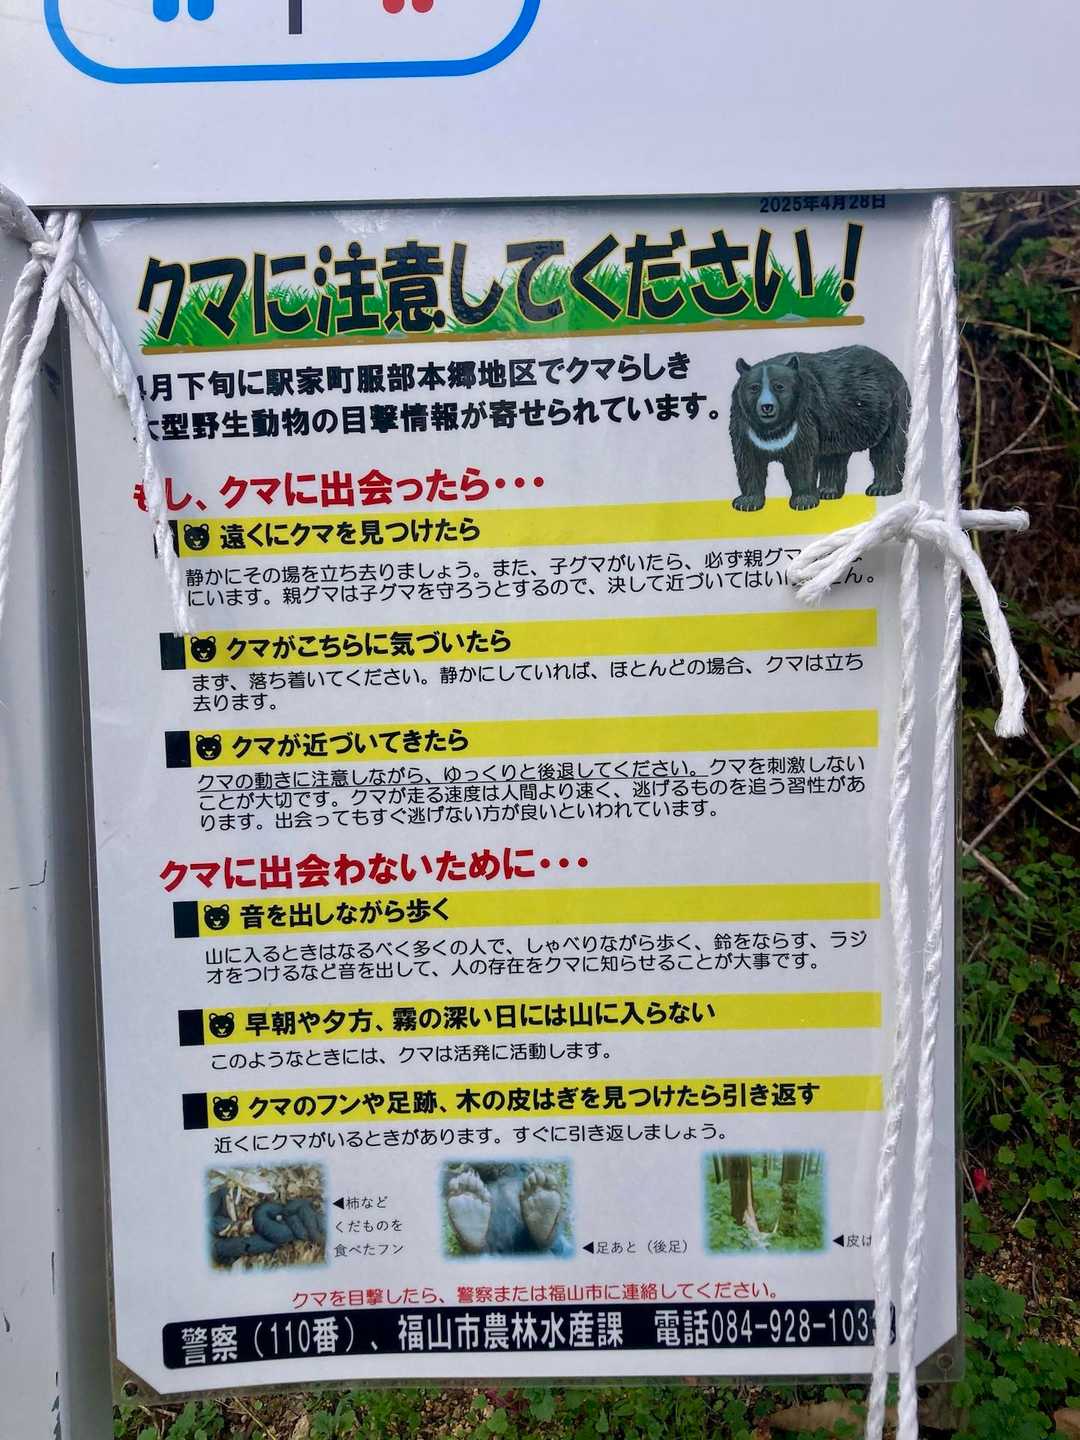 2025年4月28日
クマに注意してください！
月下旬に駅家町服部本郷地区でクマらしき
型野生動物の目撃情報が寄せられています。
もし、クマに出会ったら・・・
遠くにクマを見つけたら
静かにその場を立ち去りましょう。また、子グマがいたら、必ず親グマ
にいます。親グマは子グマを守ろうとするので、決して近づいてはい
クマがこちらに気づいたら
まず、落ち着いてください。静かにしていれば、ほとんどの場合、クマは立ち
去ります。
クマが近づいてきたら
クマの動きに注意しながら、ゆっくりと後退してください。クマを刺激しない
ことが大切です。クマが走る速度は人間より速く、逃げるものを追う習性があ
ります。出会ってもすぐ逃げない方が良いといわれています。
クマに出会わないために・・・
音を出しながら歩く
山に入るときはなるべく多くの人で、しゃべりながら歩く、鈴をならす、ラジ
オをつけるなど音を出して、人の存在をクマに知らせることが大事です。
早朝や夕方、霧の深い日には山に入らない
このようなときには、クマは活発に活動します。
クマのフンや足跡、木の皮はぎを見つけたら引き返す
近くにクマがいるときがあります。すぐに引き返しましょう。
◀柿など
くだものを
食べたフン
◀足あと（後足）
◀皮は
クマを目撃したら、警察または福山市に連絡してください。
警察（110番）、福山市農林水産課　電話084-928-103